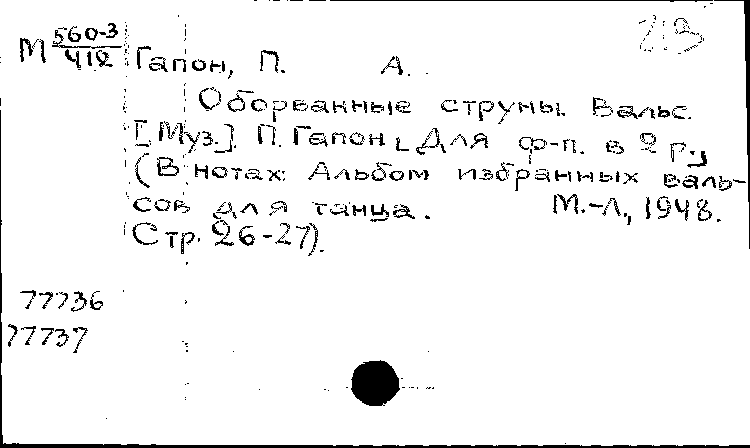 213
М 560-3/412 Гапон, П. А.
Оборванные струны. Вальс.
[Муз.] П. Гапон [Для ф-п. в 2 р.]
(В нотах: Альбом избранных валь-
сов для танца. М.-Л., 1948.
Стр. 26-27).
77736
77737